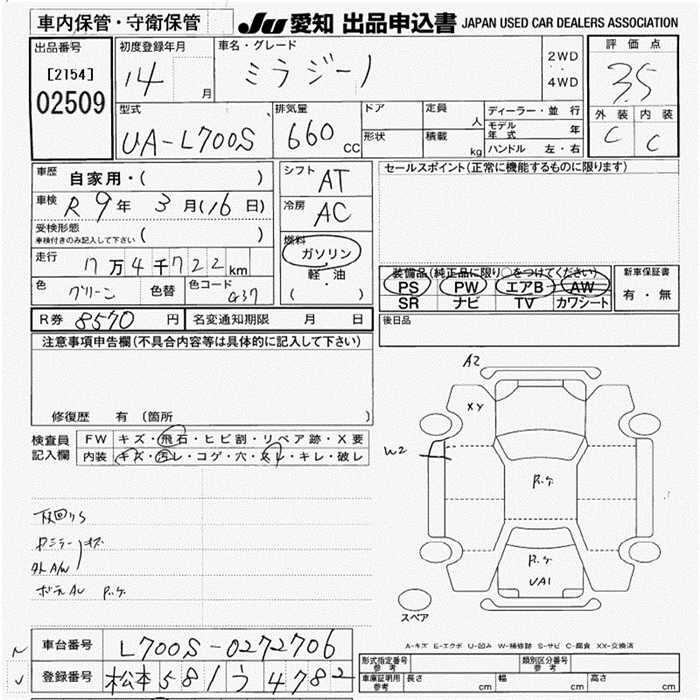 車内保管・守衛保管
JU 愛知 出品申込書 JAPAN USED CAR DEALERS ASSOCIATION
出品番号
[2154]
02509
初度登録年月
14 月
車名・グレード
ミラジーノ
2WD
・・
4WD
評価点
3.5
外装 内装
C C
型式
UA-L700S
排気量
660 CC
ドア
形状
定員 人
積載 kg
ディーラー・並行
モデル年式 年
ハンドル 左・右
車歴
自家用・( )
車検 R 9年 3月(16日)
受検形態
車検付きのみ記入して下さい ( )
走行 7万4千722km
色 グリーン 色替 色コード G37
シフト AT
冷房 AC
燃料
ガソリン
・
軽・油
( )
セールスポイント(正常に機能するものに限ります)
装備品(純正品に限り○をつけてください)
PS PW エアB AW
SR ナビ TV カワシート
新車保証書
有・無
R券 8570 円 名変通知期限 月 日
後日品
注意事項申告欄(不具合内容等は具体的に記入して下さい)
修復歴 有(箇所 )
検査員記入欄
FW キズ・飛石・ヒビ割・リペア跡・X要
内装 キズ・汚レ・コゲ・穴・スレ・キレ・破レ
A2
XY
W2
P.ケ.
P.ケ.
UA1
スペア
下回りS
ドミラー キズ
外A/W
P.ケ.
A-キズ E-エクボ U-凹み W-補修跡 S-サビ C-腐食 XX-交換済
車台番号 L700S-0272706
登録番号 松本 581 う 4782
型式指定番号 参考
類別区分番号 参考
車庫証明用 参考 長さ cm 幅 cm 高さ cm